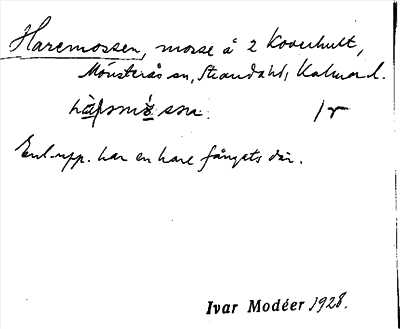 Haremossen, mosse å 2 Koverhult,
Mönsterås sn, Strandahd, Kalmar l.
1 r
Enl. upp. har en hare fångats där.
Ivar Modéer 1928.